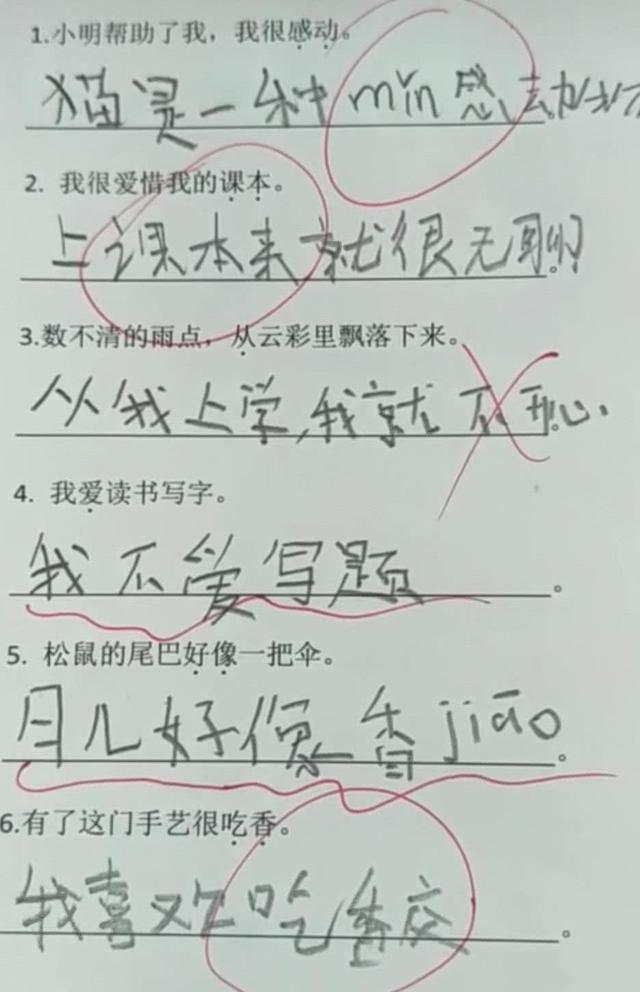 1.小明帮助了我，我很感动。
猫是一种mǐn感动物
2. 我很爱惜我的课本。
上课本来就很无聊。
3.数不清的雨点，从云彩里飘落下来。
从我上学，我就不开心。
4. 我爱读书写字。
我不爱写题。
5. 松鼠的尾巴好像一把伞。
月儿好像香jiāo。
6.有了这门手艺很吃香。
我喜欢吃香。